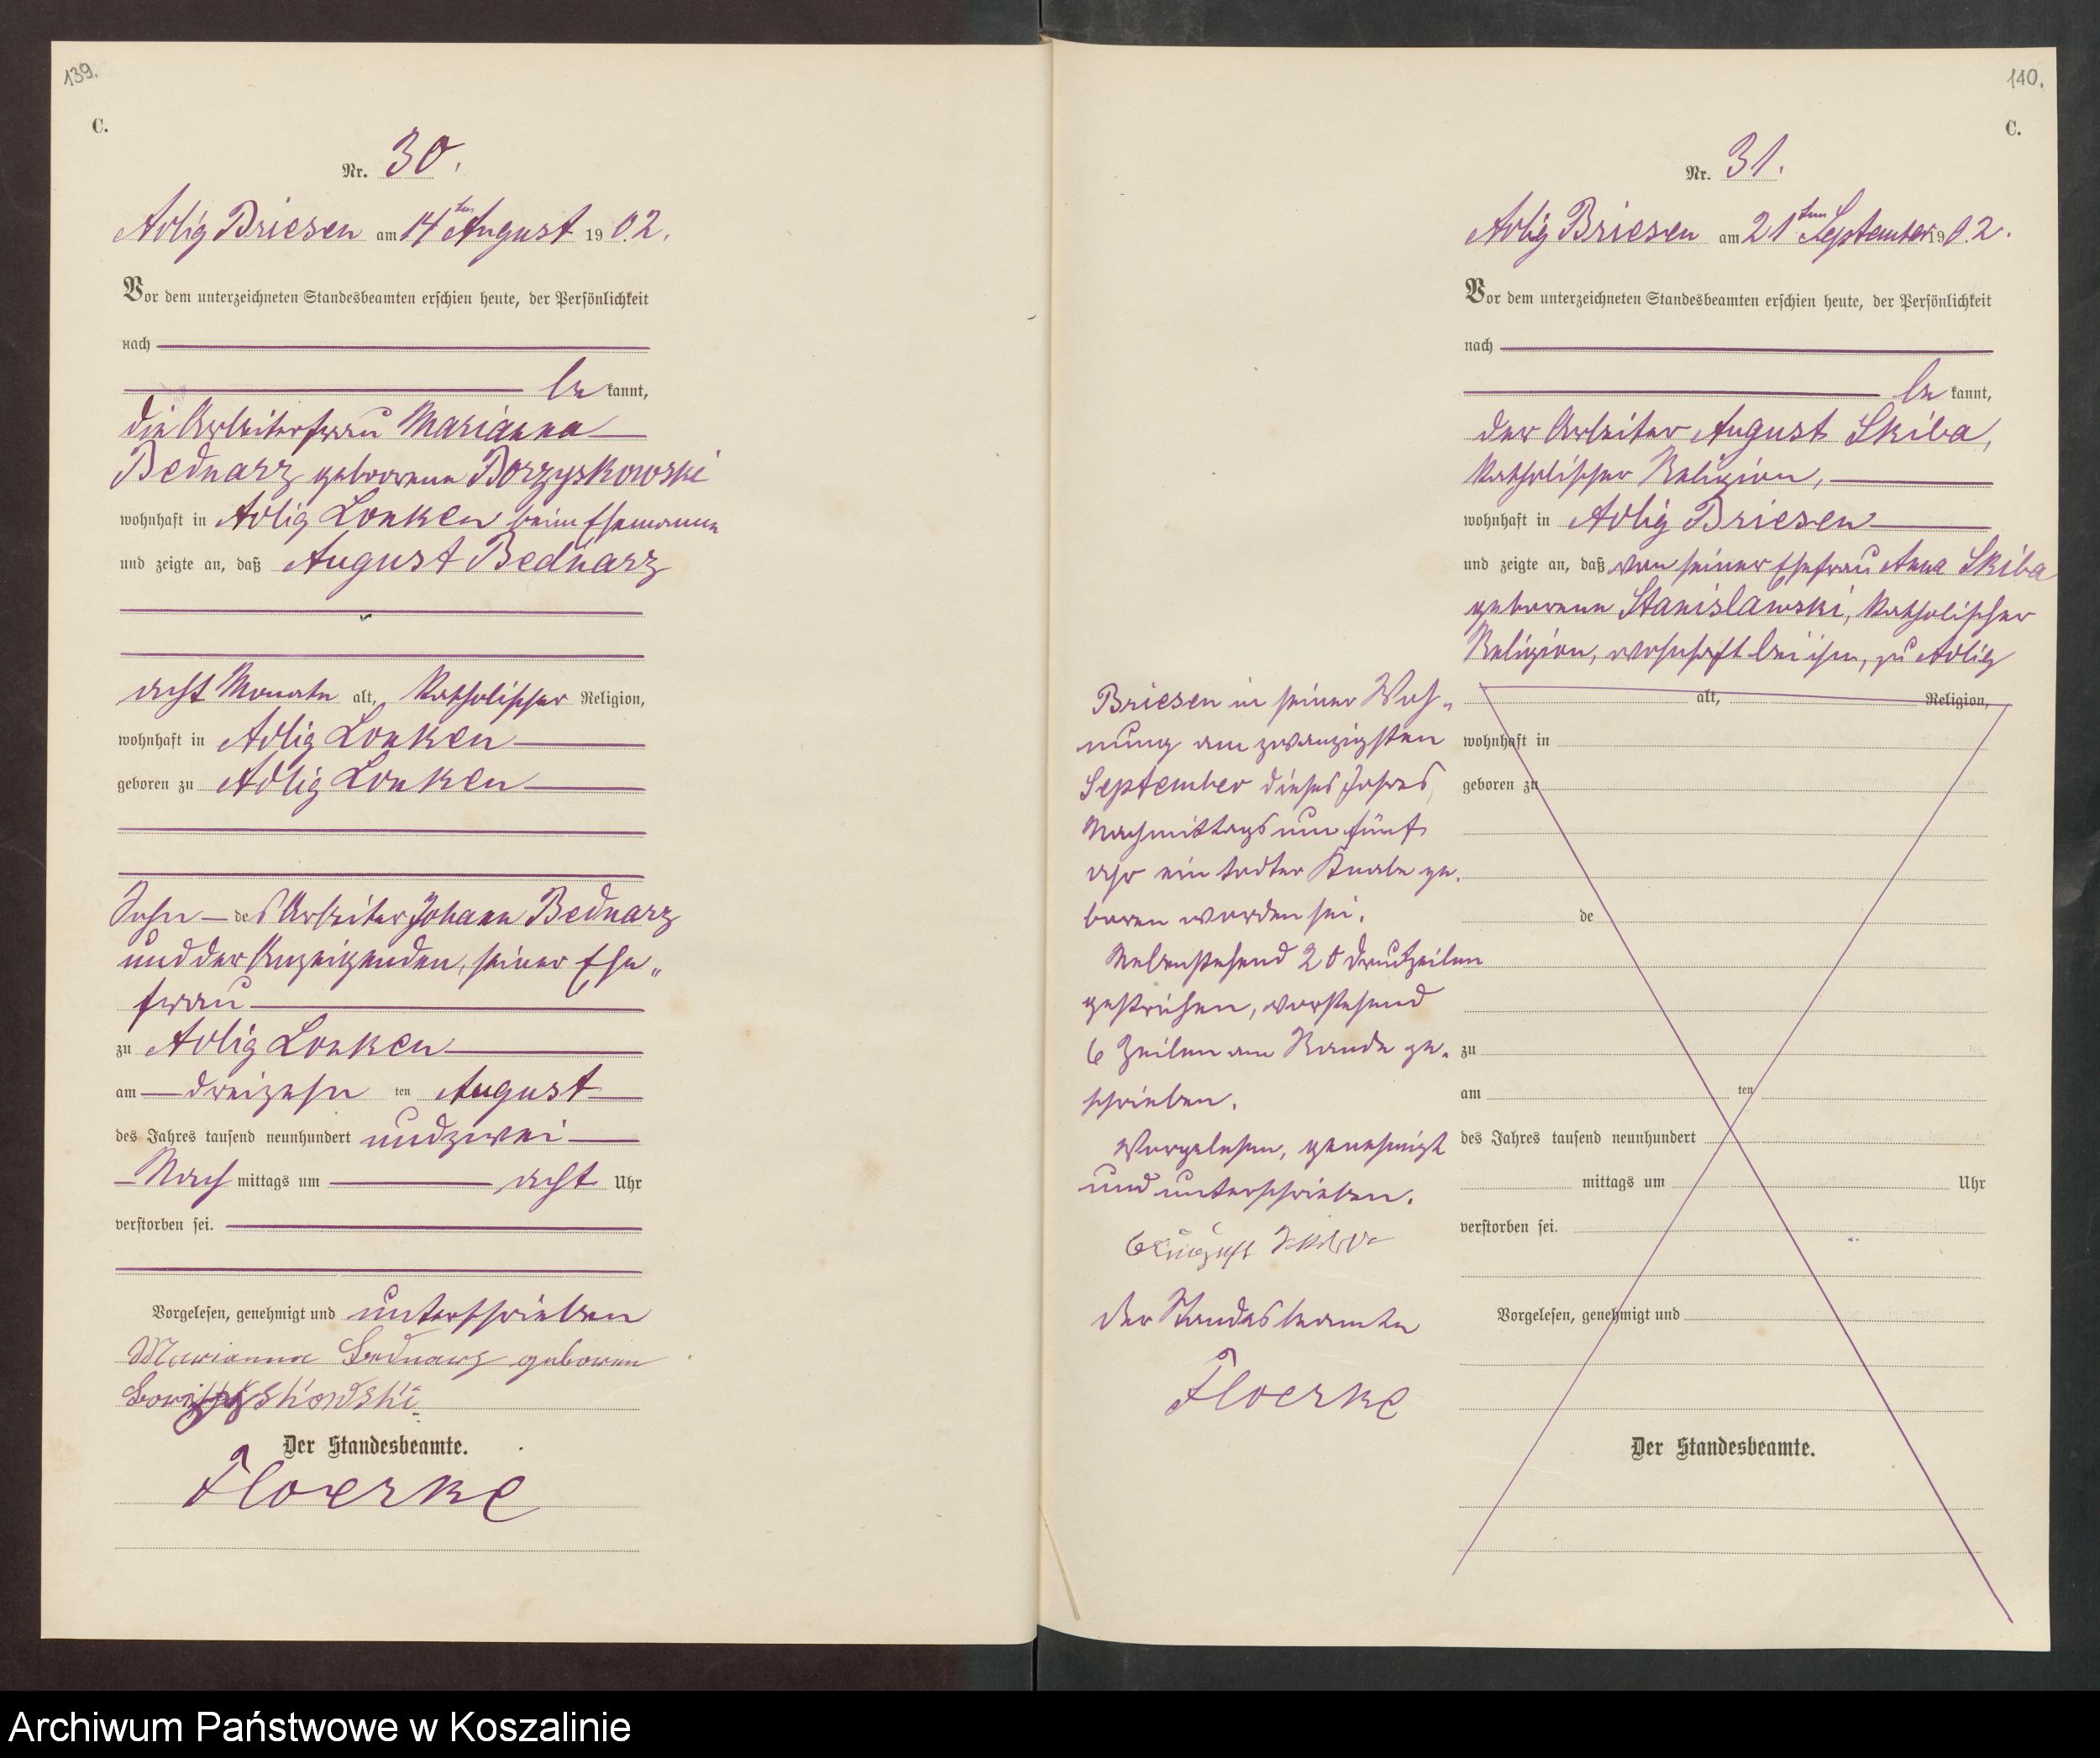 139.
C.
Nr. 30.
Adlig Briesen am 14ten August 1902.
Vor dem unterzeichneten Standesbeamten erschien heute, der Persönlichkeit
nach
bekannt,
die Arbeiterfrau Marianna
Bednarz geborene Borzyskowski
wohnhaft in Adlig Lonken beim Ehemanne
und zeigte an, daß August Bednarz
acht Monate alt, katholischer Religion,
wohnhaft in Adlig Lonken
geboren zu Adlig Lonken
Sohn des Arbeiter Johann Bednarz
und der Anzeigenden, seiner Ehe„
frau
zu Adlig Lonken
am dreizehn ten August
des Jahres tausend neunhundert und zwei
Nach mittags um acht Uhr
verstorben sei.
Vorgelesen, genehmigt und unterschrieben
Marianna Bednarz geboren
Der Standesbeamte.
Floerke
140.
C.
Nr. 31.
Adlig Briesen am 21ten September 1902.
Vor dem unterzeichneten Standesbeamten erschien heute, der Persönlichkeit
nach
bekannt,
der Arbeiter August Skiba,
katholischer Religion,
wohnhaft in Adlig Briesen
und zeigte an, daß von seiner Ehefrau Anna Skiba
geborene Stanislawski, katholischer
Religion, wohnhaft bei ihm, zu Adlig
Briesen in seiner Woh„
nung am zwanzigsten
September dieses Jahres
Nachmittags um fünf
Uhr ein todter Knabe ge.
boren worden sei.
Nebenstehend 20 Druckzeilen
gestrichen, vorstehend
6 Zeilen am Rande ge.
schrieben.
Vorgelesen, genehmigt
und unterschrieben.
August Skiba
Der Standesbeamte
Floerke
alt, Religion,
wohnhaft in
geboren zu
de
zu
am ten
des Jahres tausend neunhundert
mittags um Uhr
verstorben sei.
Vorgelesen, genehmigt und
Der Standesbeamte.
Archiwum Państwowe w Koszalinie